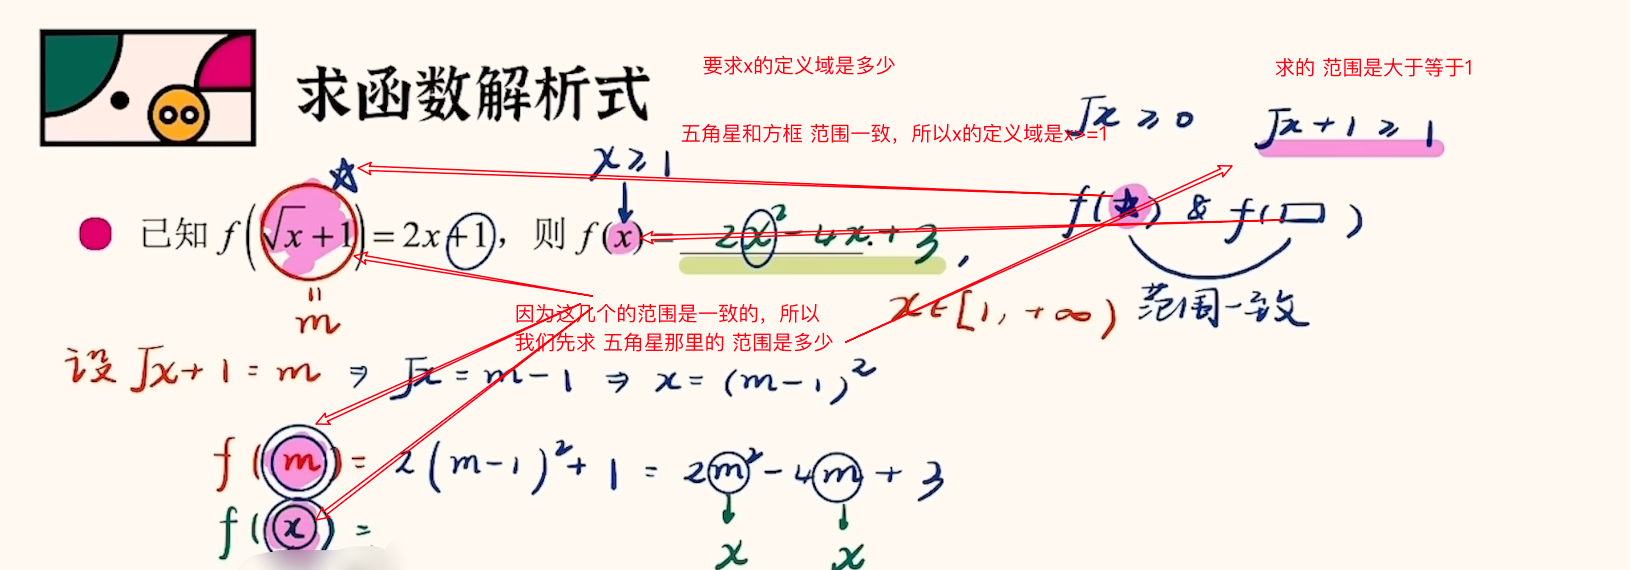 求函数解析式
要求x的定义域是多少
求的 范围是大于等于1
五角星和方框 范围一致，所以x的定义域是x>=1
√x ≥ 0
√x + 1 ≥ 1
x ≥ 1
f(☆) & f(□)
范围一致
已知 f(√x+1)=2x+1，则 f(x)= 2x²-4x+3，
x∈[1, +∞)
=
m
因为这几个的范围是一致的，所以
我们先求 五角星那里的 范围是多少
设 √x+1=m ⇒ √x=m-1 ⇒ x=(m-1)²
f(m)=2(m-1)²+1=2m²-4m+3
f(x)=
x x